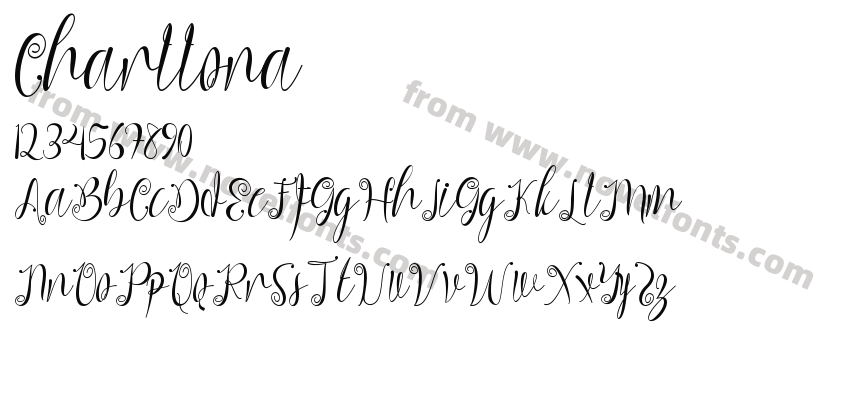 Charttona
1234567890
AaBbCcDdEeFfGgHhIiGgKkLlMm
NnOoPpQqRrSsTtUuVvWwXxYyZz
from www.novelfonts.com
from www.novelfonts.com